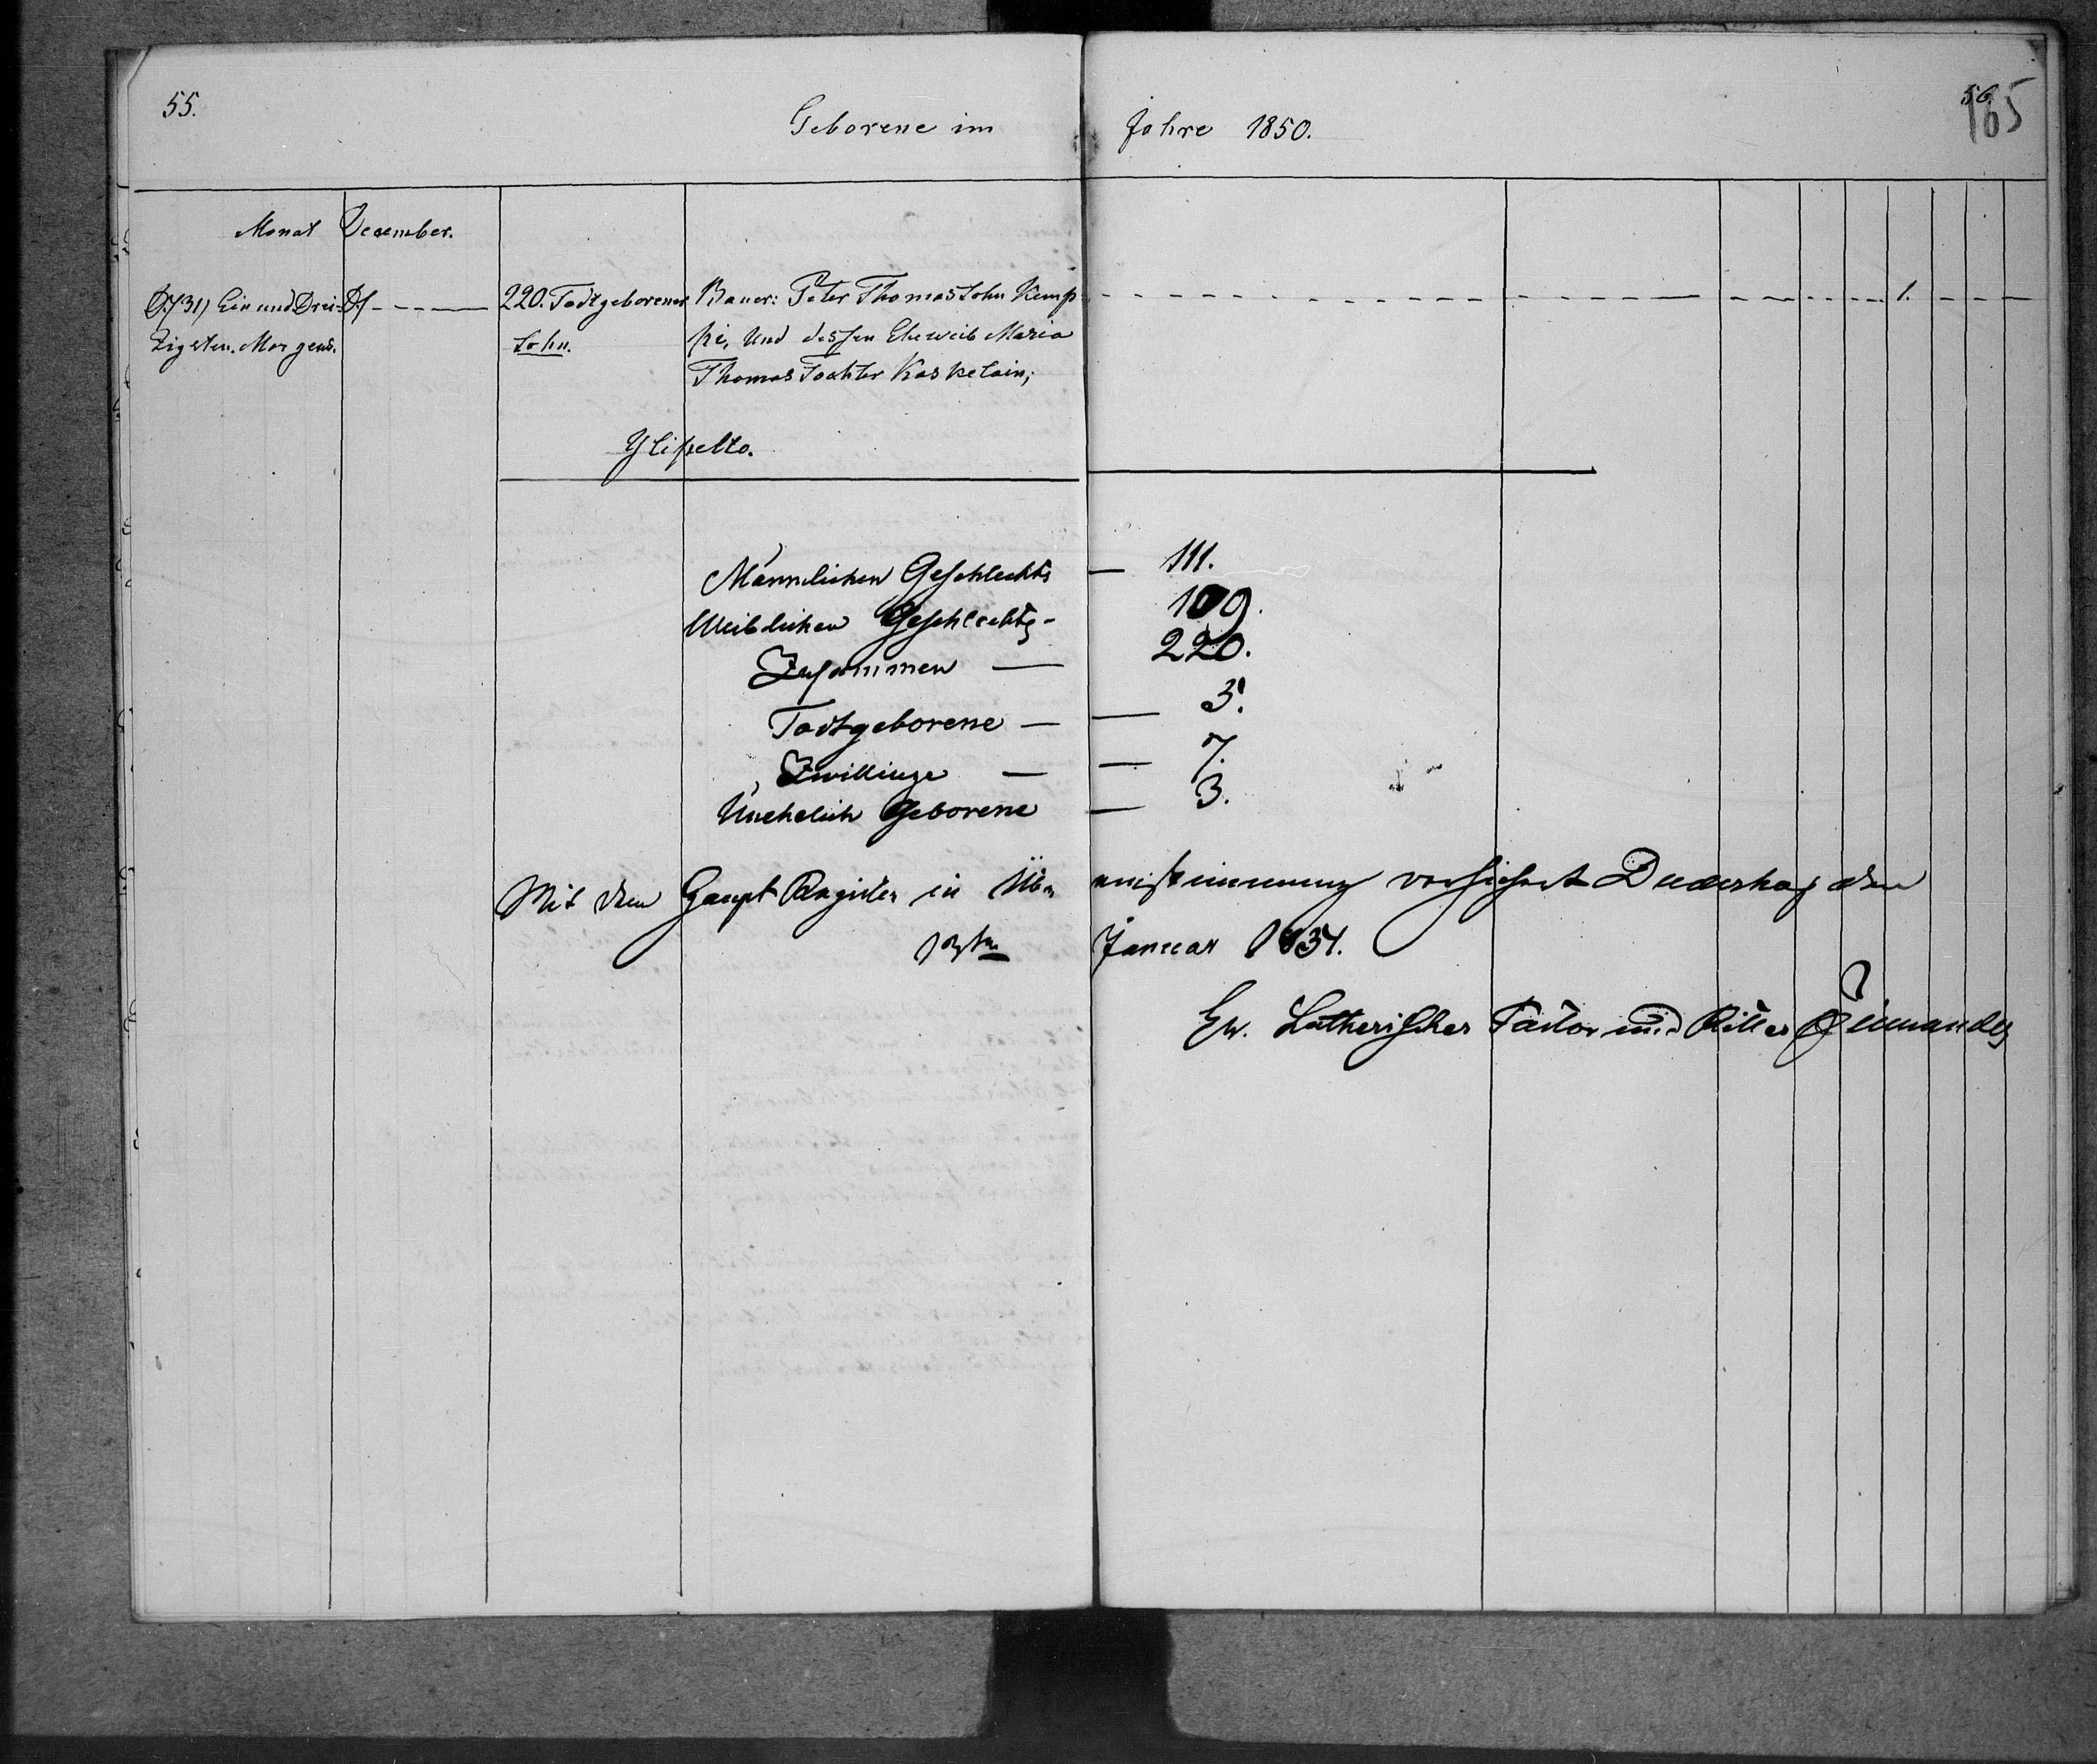 55.
56.
165
Geborene im Jahre 1850.
Monat December.
31) Ein und Drei- 220. Todtgeborener Bauer: Peter Thomas Sohn Kemp 1.
zigsten. Morgens. Sohn. pi, und dessen Eheweib Maria
Thomas Tochter Kaskelain;
Ylipelto.
Männlichen Geschlechts — 111.
Weiblichen Geschlechts - 109.
Zusammen — 220.
Todtgeborene — 3.
Zwillinge — 7.
Unehelich Geborene — 3.
Mit dem Haupt Register in Übereinstimmung versichert Duderhof den
Januar 1851.
Ev. Lutherischer Pastor und Ritter